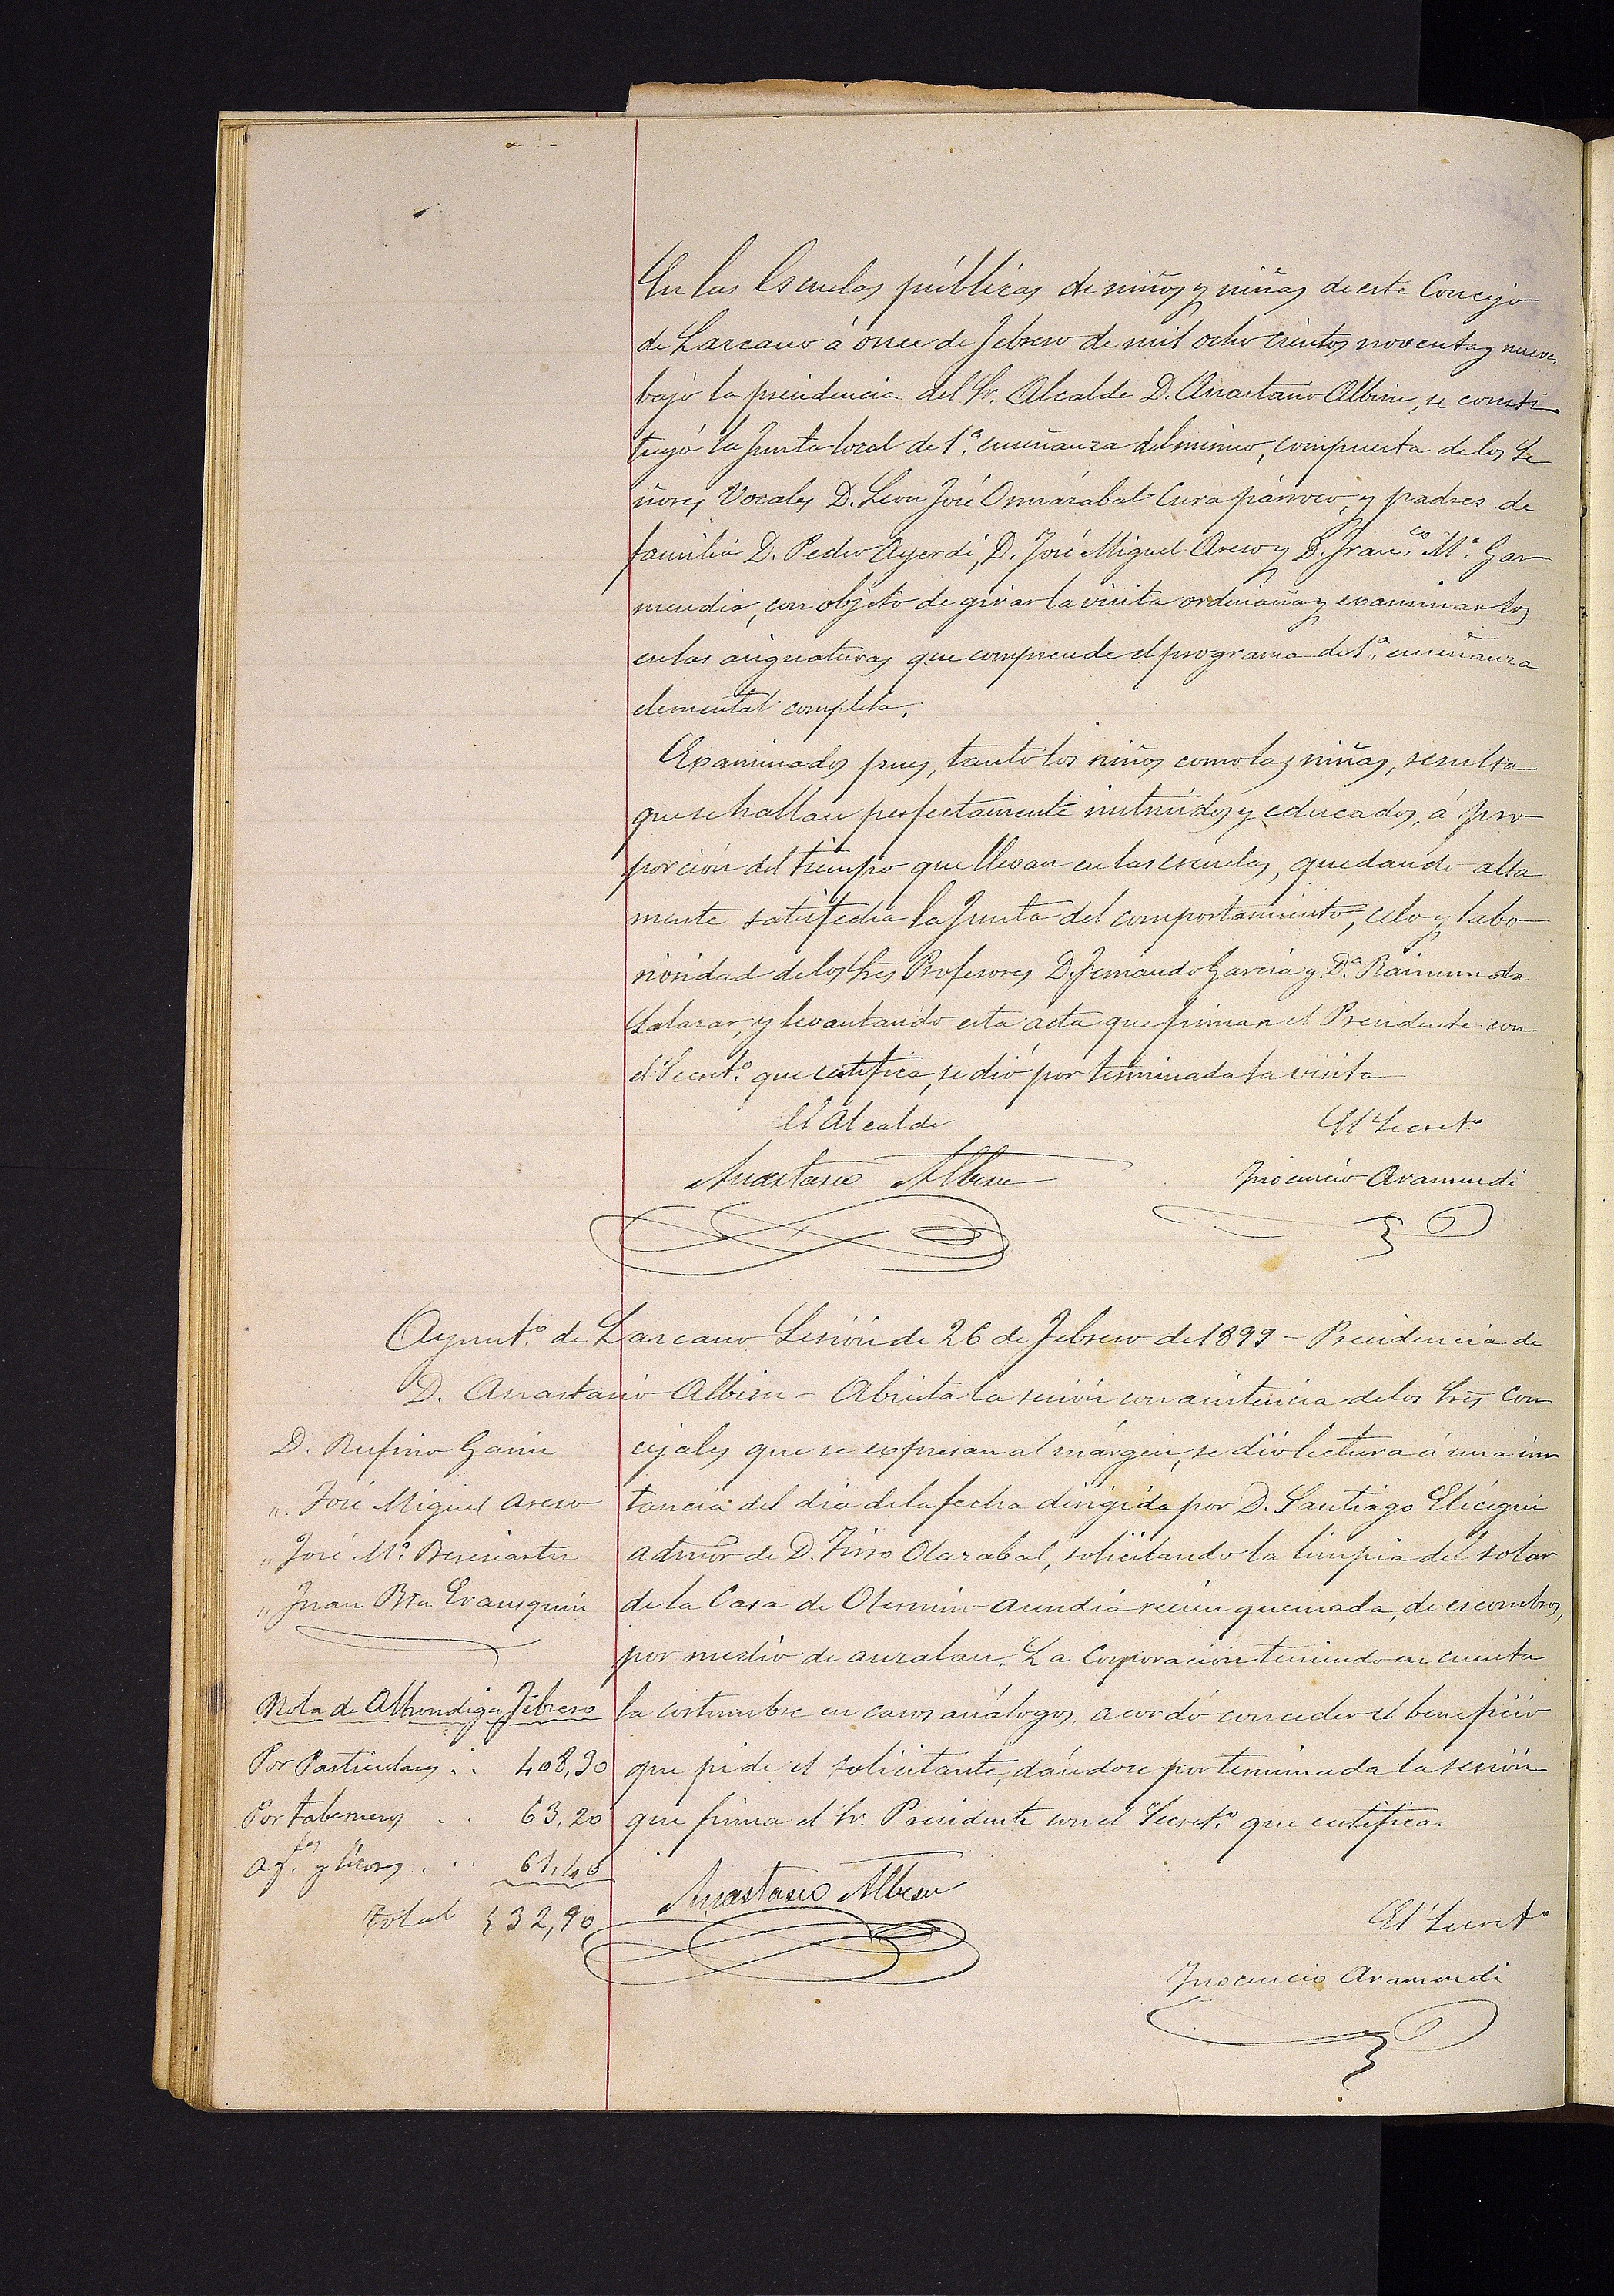 En las Escuelas públicas de niños y niñas de este Concejo
de Lazcano á once de Febrero de mil ocho cientos noventa y nueve
bajo la presidencia del Sr. Alcalde D. Anastasio Albisu, se consti
tuyó la Junta local de 1ª. enseñanza del mismo, compuesta de los Se
ñores Vocales D. Leon José Ormazabal Cura párroco, y padres de
familia D. Pedro Ayerdi, D. José Miguel Areso y D. Fran.co Mª. Gar
mendia, con objeto de girar la visita ordinaria y examinarlos
en las asignaturas que comprende el programa de 1ª. enseñanza
elemental completa.
Examinados pues, tanto los niños como las niñas, resulta
que se hallan perfectamente instruidos y educados, á pro
porción del tiempo que llevan en las escuelas, quedando alta
mente satisfecha la Junta del comportamiento, celo y labo
riosidad de los Sres Profesores D. Fernando Garcia y Dª. Raimunda
Salazar, y levantando esta acta que firman el Presidente con
el Secretº. que certifica, se dió por terminada la visita
El Alcalde
El Secretº
Anastasio Albisu
Inocencio Aramendi
Ayuntº. de Lazcano Sesión de 26 de Febrero de 1899 - Presidencia de
D. Anastasio Albisu - Abierta la sesión con asistencia de los Sres Con
D. Rufino Garin
cejales que se expresan al márgen, se dió lectura á una ins
" José Miguel Areso
tancia del dia de la fecha dirigida por D. Santiago Elicegui
" José Mª. Beresiartu
admor de D. Tirso Olazabal, solicitando la limpia del solar
" Juan Bta Erausquin
de la Casa de Otermin-aundia recien quemada, de escombros,
por medio de auzalan. La Corporacion teniendo en cuenta
Nota de Alhondiga Febrero
la costumbre en casos análogos, acordó conceder el beneficio
Por Particulares .. 408,30
que pide el solicitante, dándose por terminada la sesión
Por taberneros .. 63,20
que firma el Sr. Presidente con el Secretº. que certifica.
y licores ... 61,40
Anastasio Albisu
Total 532,90
El Secretº
Inocencio Aramendi